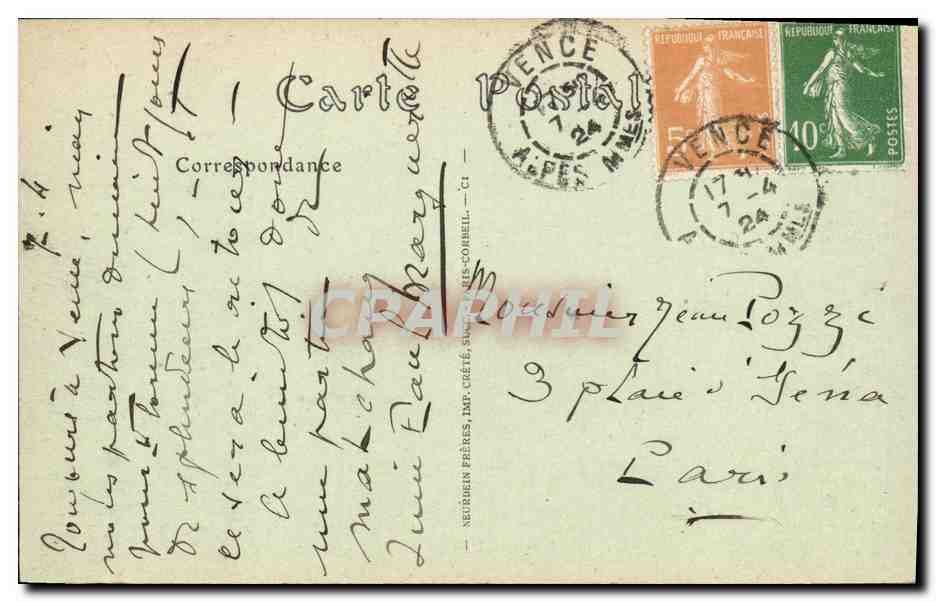 Carte Postale
Correspondance
7-4
Toujours à Vence, mais
nous partons demain
pour
de splendeurs! -
ce sera le retour -
A bientôt donc
une partie de
match
Marguerite
NEURDEIN FRÈRES, IMP. CRÉTÉ, SUCC. PARIS-CORBEIL. — CI
VENCE
17
7 -4
24
ALPES MMES
REPUBLIQUE FRANÇAISE
5c
REPUBLIQUE FRANÇAISE
10c
POSTES
VENCE
17
7 -4
24
A MMES
Monsieur Jean Pozzi
3 place d'Iéna
Paris
CPAPHIL